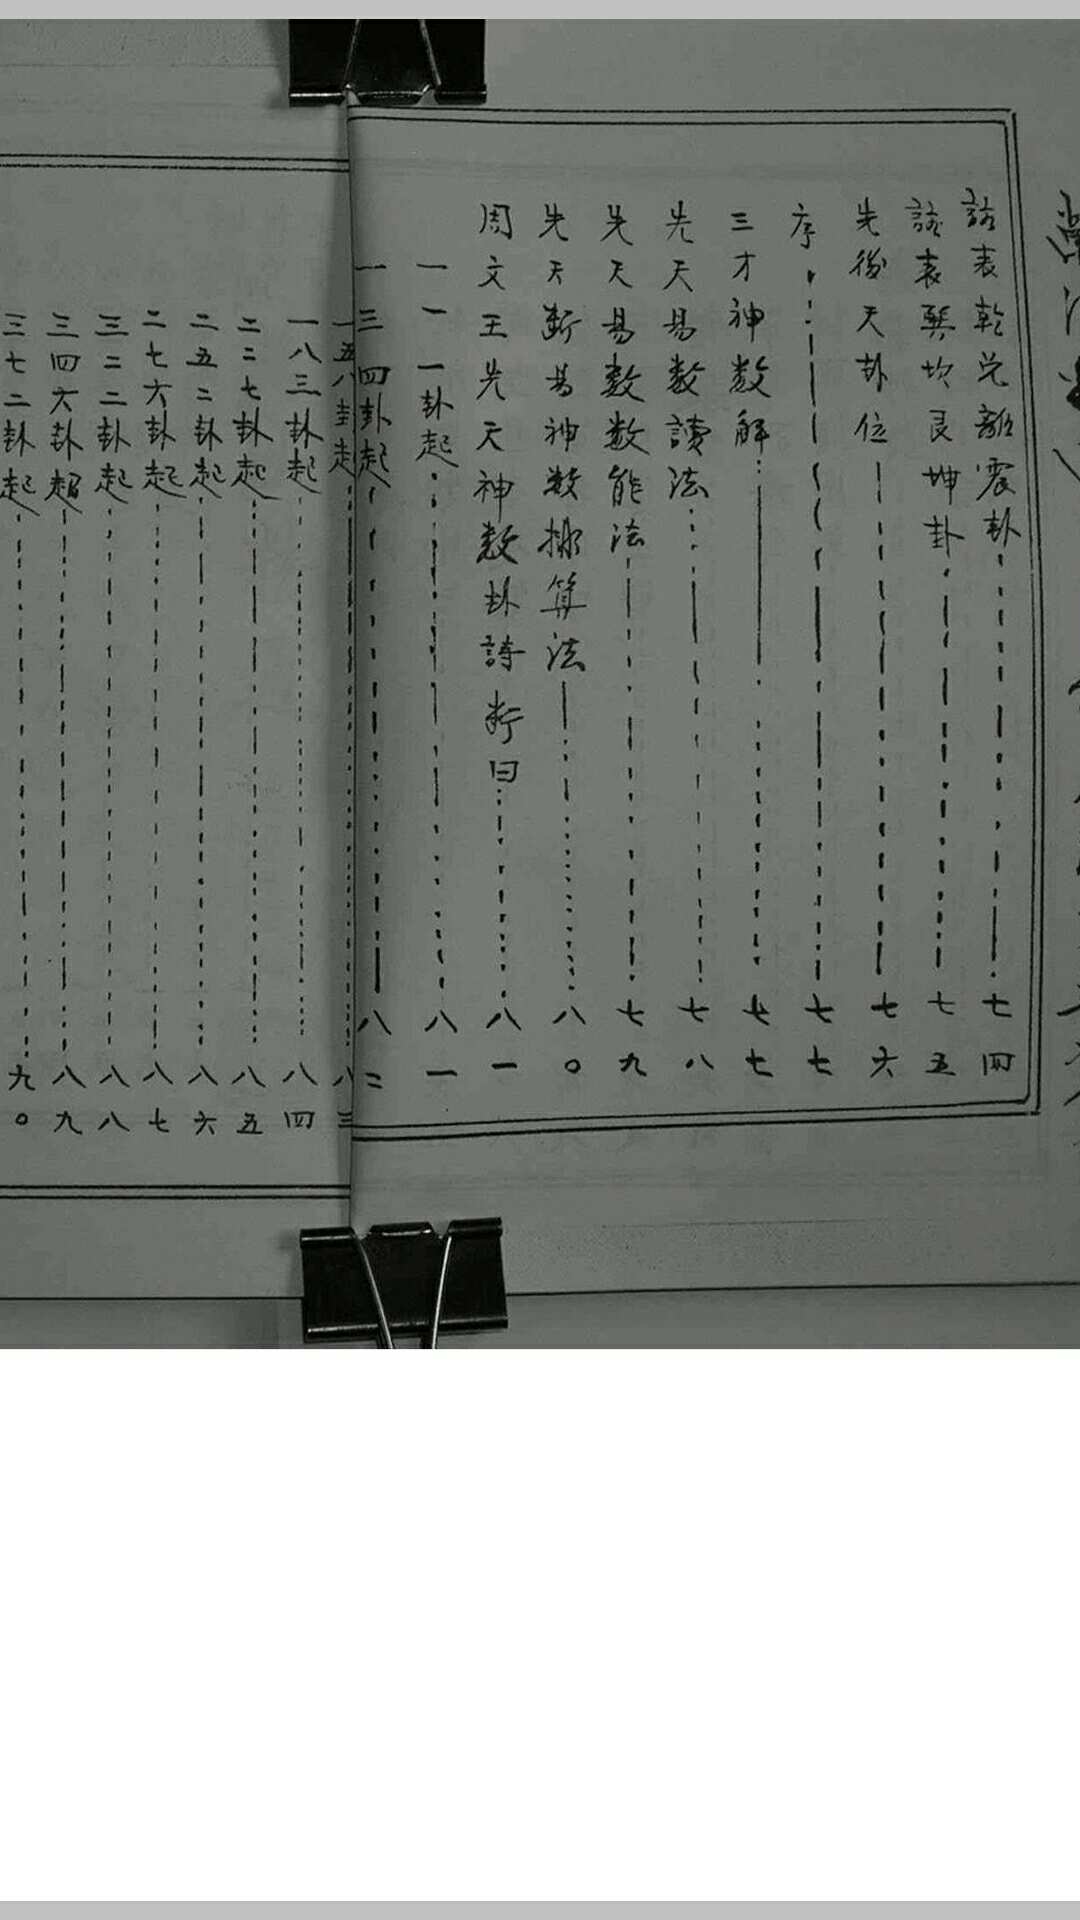 該表乾兌離震卦 七四
該表巽坎艮坤卦 七五
先後天卦位 七六
序 七七
三才神數解 七七
先天易數讀法 七八
先天易數數能法 七九
先天斷易神數排算法 八〇
周文王先天神數卦詩斷曰 八一
一一一卦起 八一
一三四卦起 八二
一五八卦起 八三
一八三卦起 八四
二二七卦起 八五
二五二卦起 八六
二七六卦起 八七
三二二卦起 八八
三四六卦起 八九
三七二卦起 九〇